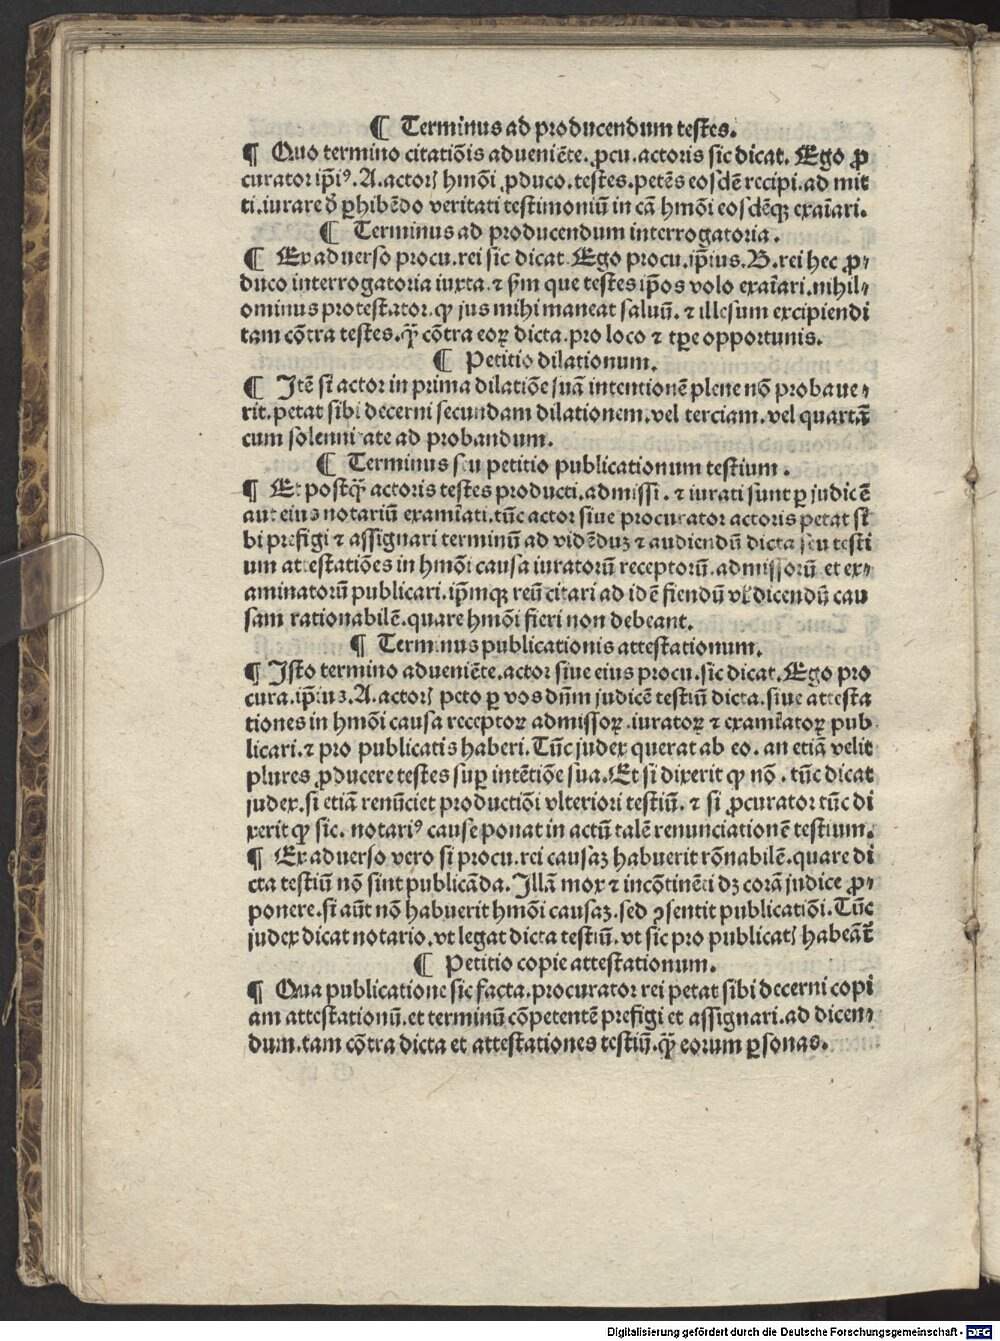 ¶ Terminus ad producendum testes.
¶ Quo termino citatiōis adueniēte. ꝓcu. actoris sic dicat. Ego ꝓ
curator ip̄iꝰ. A. actorꝭ hmōi ꝓduco. testes. petēs eosdē recipi. ad mit
ti. iurare ⁊ ꝑhibēdo veritati testimoniū in cā hmōi eosdēqꝫ exaīari.
¶ Terminus ad producendum interrogatoria.
¶ Ex aduerso procu. rei sic dicat Ego procu. ip̄ius. B. rei hec ꝓ⸗
duco interrogatoria iuxta. ⁊ ẜm que testes ip̄os volo exaīari. nihil⸗
ominus protestator. ꝙ jus mihi maneat saluū. ⁊ illesum excipiendi
tam cōtra testes. ꝙ̄ cōtra eoꝝ dicta. pro loco ⁊ tꝑe opportunis.
¶ Petitio dilationum.
¶ Itē si actor in prima dilatiōe suā intentionē plene nō probaue⸗
rit. petat sibi decerni secundam dilationem. vel terciam. vel quartā
cum solenni ate ad probandum.
¶ Terminus seu petitio publicationum testium.
¶ Et postꝙ̄ actoris testes producti. admissi. ⁊ iurati sunt ꝑ judicē
aut eius notariū examīati. tūc actor siue procurator actoris petat si
bi prefigi ⁊ assignari terminū ad vidēduꝫ ⁊ audiendū dicta seu testi
um attestatiōes in hmōi causa iuratorū receptorū. admissorū et ex⸗
aminatorū publicari. ip̄mqꝫ reū citari ad idē fiendū vꝉ dicendū cau
sam rationabilē. quare hmōi fieri non debeant.
¶ Terminus publicationis attestationum.
¶ Isto termino adueniēte. actor siue eius procu. sic dicat. Ego pro
cura. ip̄ius. A. actorꝭ peto ꝑ vos dn̄m judicē testiū dicta. siue attesta
tiones in hmōi causa receptoꝝ admissoꝝ. iuratoꝝ ⁊ examīatoꝝ pub
licari. ⁊ pro publicatis haberi. Tūc judex querat ab eo. an etiā velit
plures ꝓducere testes suꝑ intētiōe sua. Et si dixerit ꝙ nō. tūc dicat
judex. si etiā renūciet productiōi vlteriori testiū. ⁊ si ꝓcurator tūc di
xerit ꝙ sic. notariꝰ cause ponat in actū talē renunciationē testium.
¶ Ex aduerso vero si procu. rei causaꝫ habuerit rōnabilē. quare di
cta testiū nō sint publicāda. Illā mox ⁊ incōtinēti dꝫ corā judice ꝓ⸗
ponere. si aūt nō habuerit hmōi causaꝫ. sed ꝯsentit publicatiōi. Tūc
judex dicat notario. vt legat dicta testiū. vt sic pro publicatꝭ habeāt̄
¶ Petitio copie attestationum.
¶ Qua publicatione sic facta. procurator rei petat sibi decerni copi
am attestationū. et terminū cōpetentē prefigi et assignari. ad dicen⸗
dum. tam cōtra dicta et attestationes testiū. ꝙ̄ eorum ꝑsonas.
Digitalisierung gefördert durch die Deutsche Forschungsgemeinschaft - DFG